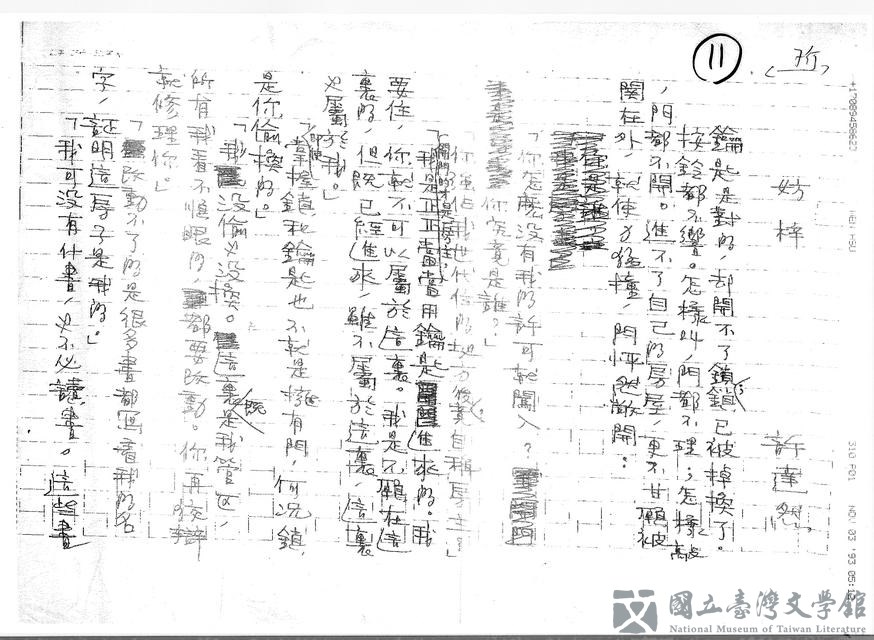 11
妨梓
許達然
鑰匙是對的,却開不了鎖,鎖已被掉換了。
按鈴都不響。怎樣叫,門都不理;怎樣敲
,門都不開。進不了自己的房屋,更不甘願被
関在外,就使力猛撞,門怦然敞開:
「你怎麼沒有我的許可就闖入?
你究竟是誰?」
「我是正正當當用鑰匙進來的。我
要住,你就不可以屬於這裏。我是不願在這
裏的,但既已經進來,雖不屬於這裏,這裏
必屬於我。」
「掌握鎖和鑰匙也不就是擁有門,何況鎖
是你偷換的。」
「我沒偷也沒換。這裏既是我管區,
所有我看不慣眼的,都要改動。你再狡辯
就修理你。」
「改動不了的是很多書都寫着我的名
字,証明這房子是我的。」
「我可沒有什書,也不必讀書。這些書
+17089459620
NEW MSU
310 P01
NOV 03 '93 05:
國立臺灣文學館
National Museum of Taiwan Literature